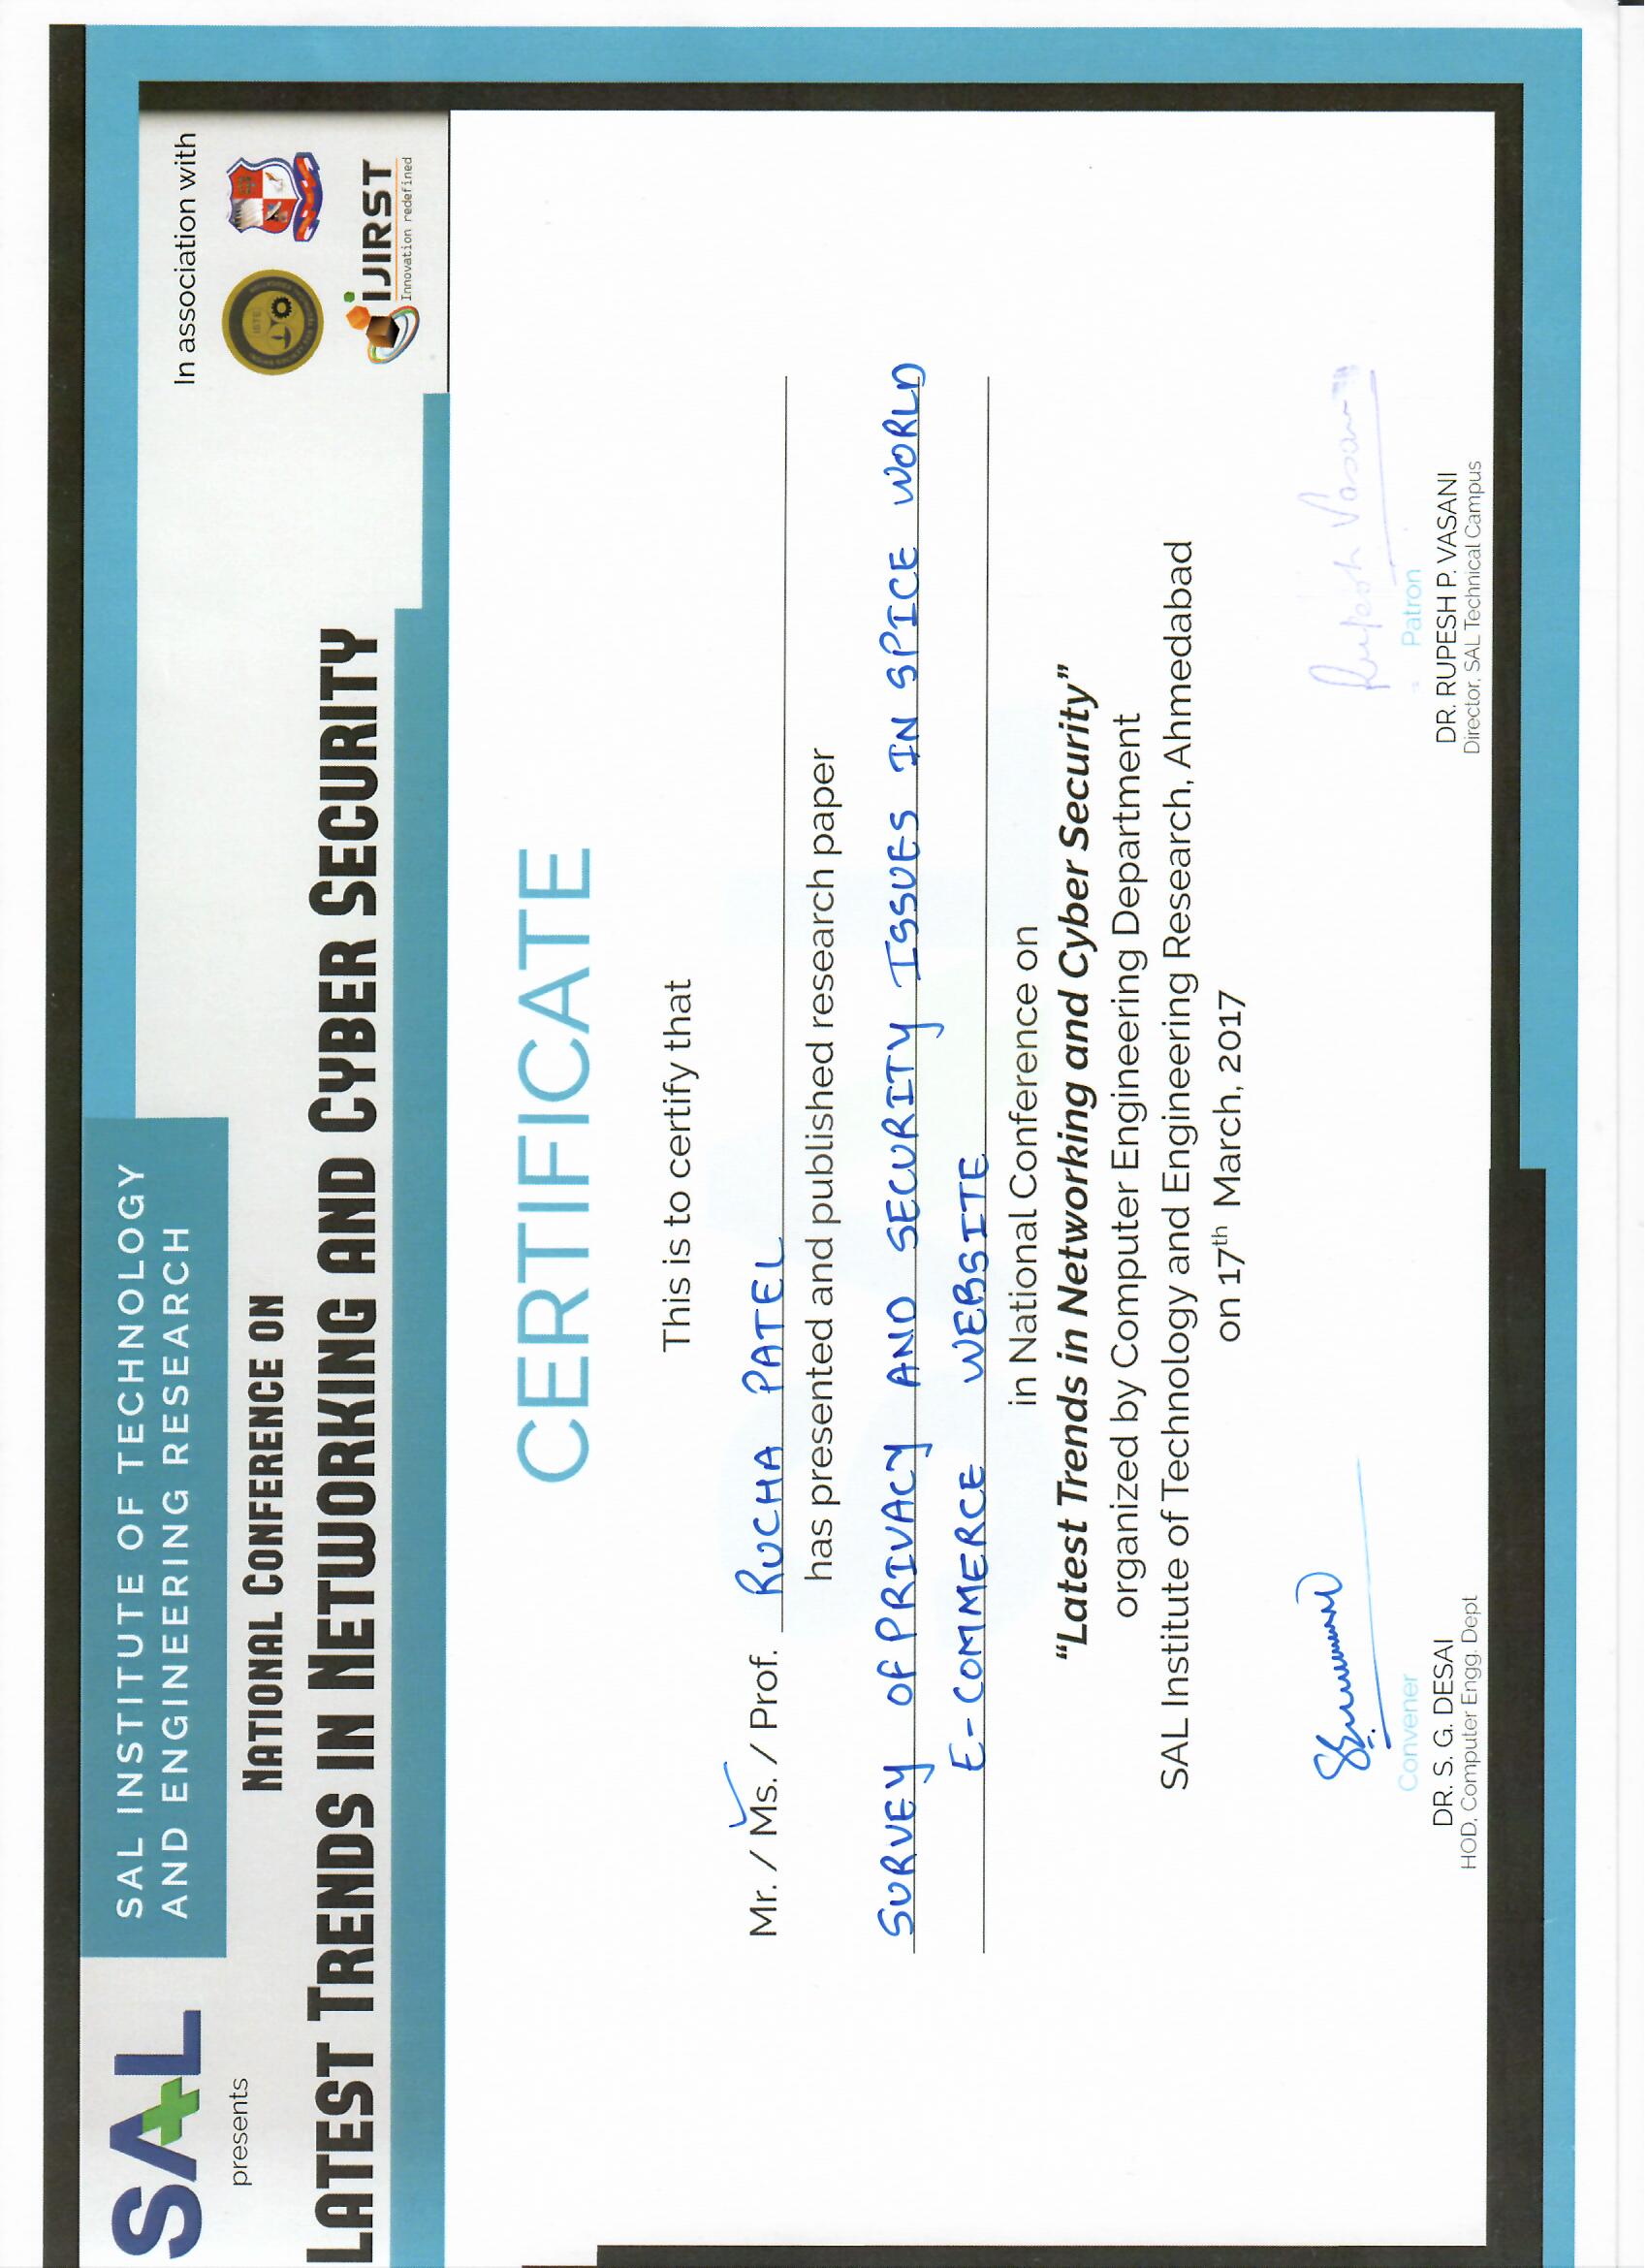 SAL
presents
SAL INSTITUTE OF TECHNOLOGY
AND ENGINEERING RESEARCH
NATIONAL CONFERENCE ON
LATEST TRENDS IN NETWORKING AND CYBER SECURITY
In association with
ISTE
iJIRST
Innovation redefined
CERTIFICATE
This is to certify that
Mr. / Ms. / Prof. RUCHA PATEL
has presented and published research paper
SURVEY OF PRIVACY AND SECURITY ISSUES IN SPICE WORLD
E-COMMERCE WEBSITE
in National Conference on
“Latest Trends in Networking and Cyber Security”
organized by Computer Engineering Department
SAL Institute of Technology and Engineering Research, Ahmedabad
on 17th March, 2017
Rupesh Vasani
Convener
DR. S. G. DESAI
HOD, Computer Engg. Dept
Patron
DR. RUPESH P. VASANI
Director, SAL Technical Campus